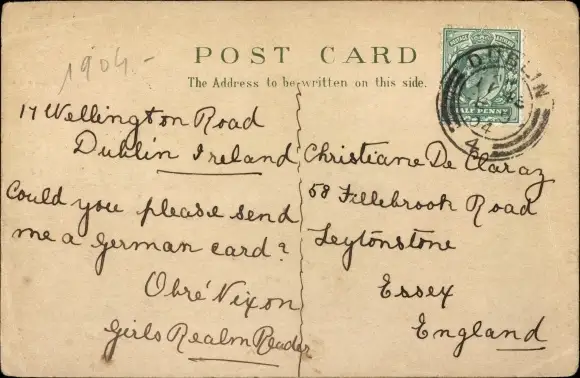 1904.-
POST CARD
The Address to be written on this side.
17 Wellington Road
Dublin Ireland
Could you please send
me a german card?
Obré Nixon
Girls Realm Reader
Christiane De Claraz
58 Fillebrook Road
Leytonstone
Essex
England
HALF PENNY
DUBLIN
04